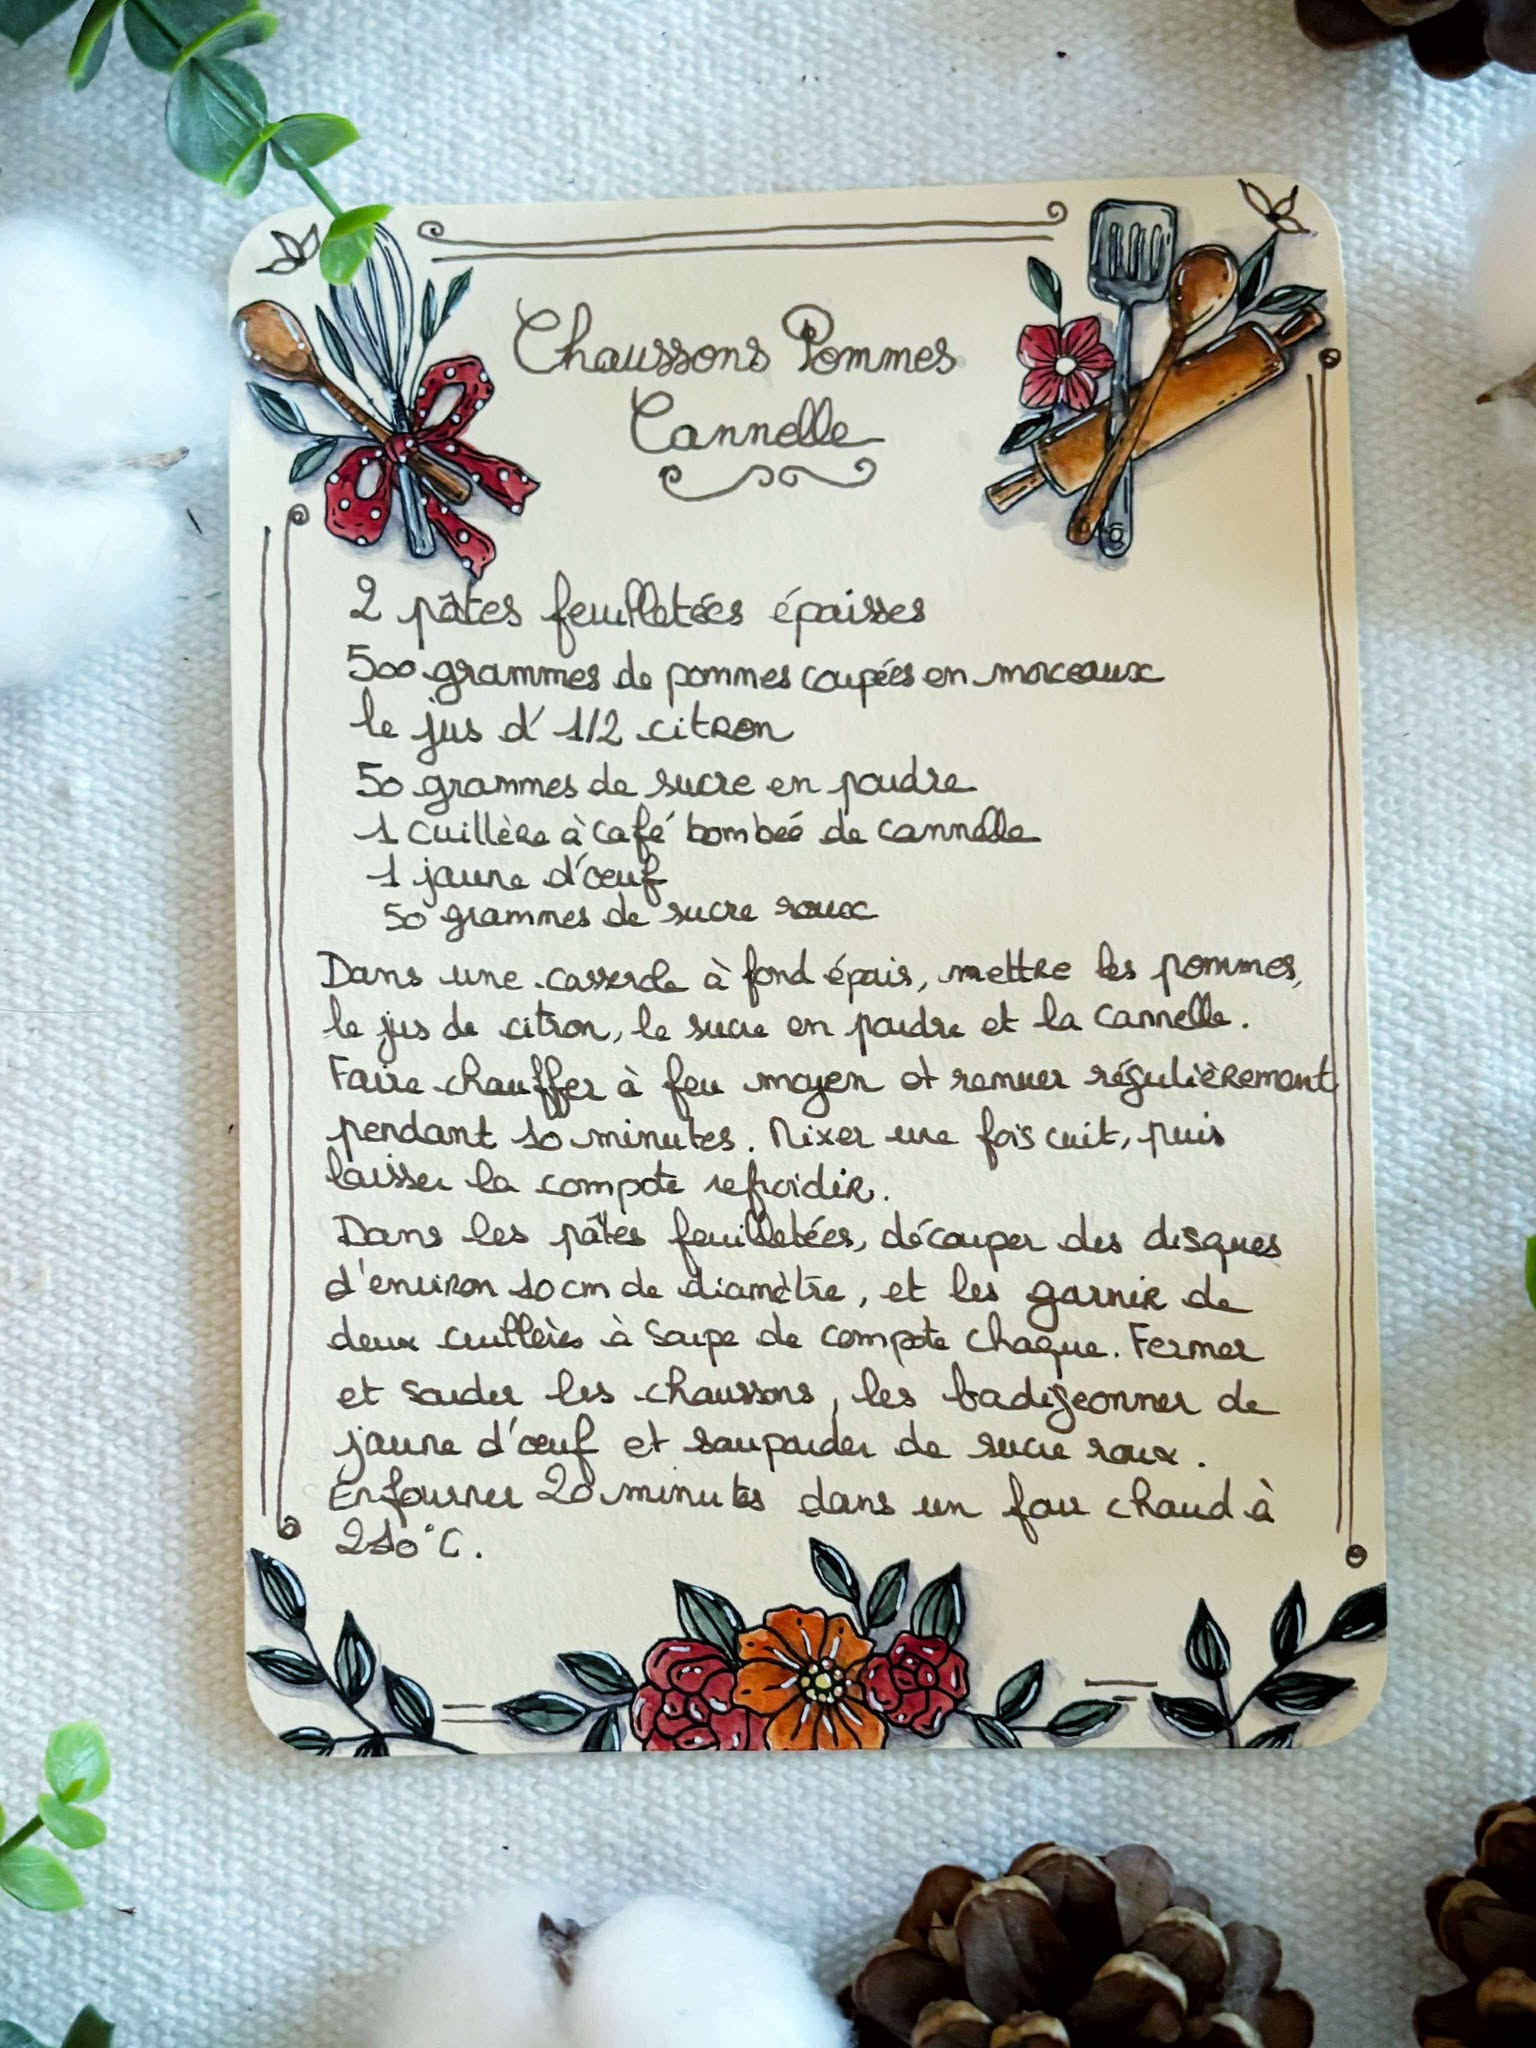 Chaussons Pommes
Cannelle
2 pâtes feuilletées épaisses
500 grammes de pommes coupées en morceaux
le jus d'1/2 citron
50 grammes de sucre en poudre
1 cuillère à café bombée de cannelle
1 jaune d'œuf
50 grammes de sucre roux
Dans une casserole à fond épais, mettre les pommes,
le jus de citron, le sucre en poudre et la cannelle.
Faire chauffer à feu moyen et remuer régulièrement
pendant 10 minutes. Mixer une fois cuit, puis
laisser la compote refroidir.
Dans les pâtes feuilletées, découper des disques
d'environ 10 cm de diamètre, et les garnir de
deux cuillères à soupe de compote chaque. Fermer
et souder les chaussons, les badigeonner de
jaune d'œuf et saupouder de sucre roux.
Enfourner 20 minutes dans un four chaud à
210°C.